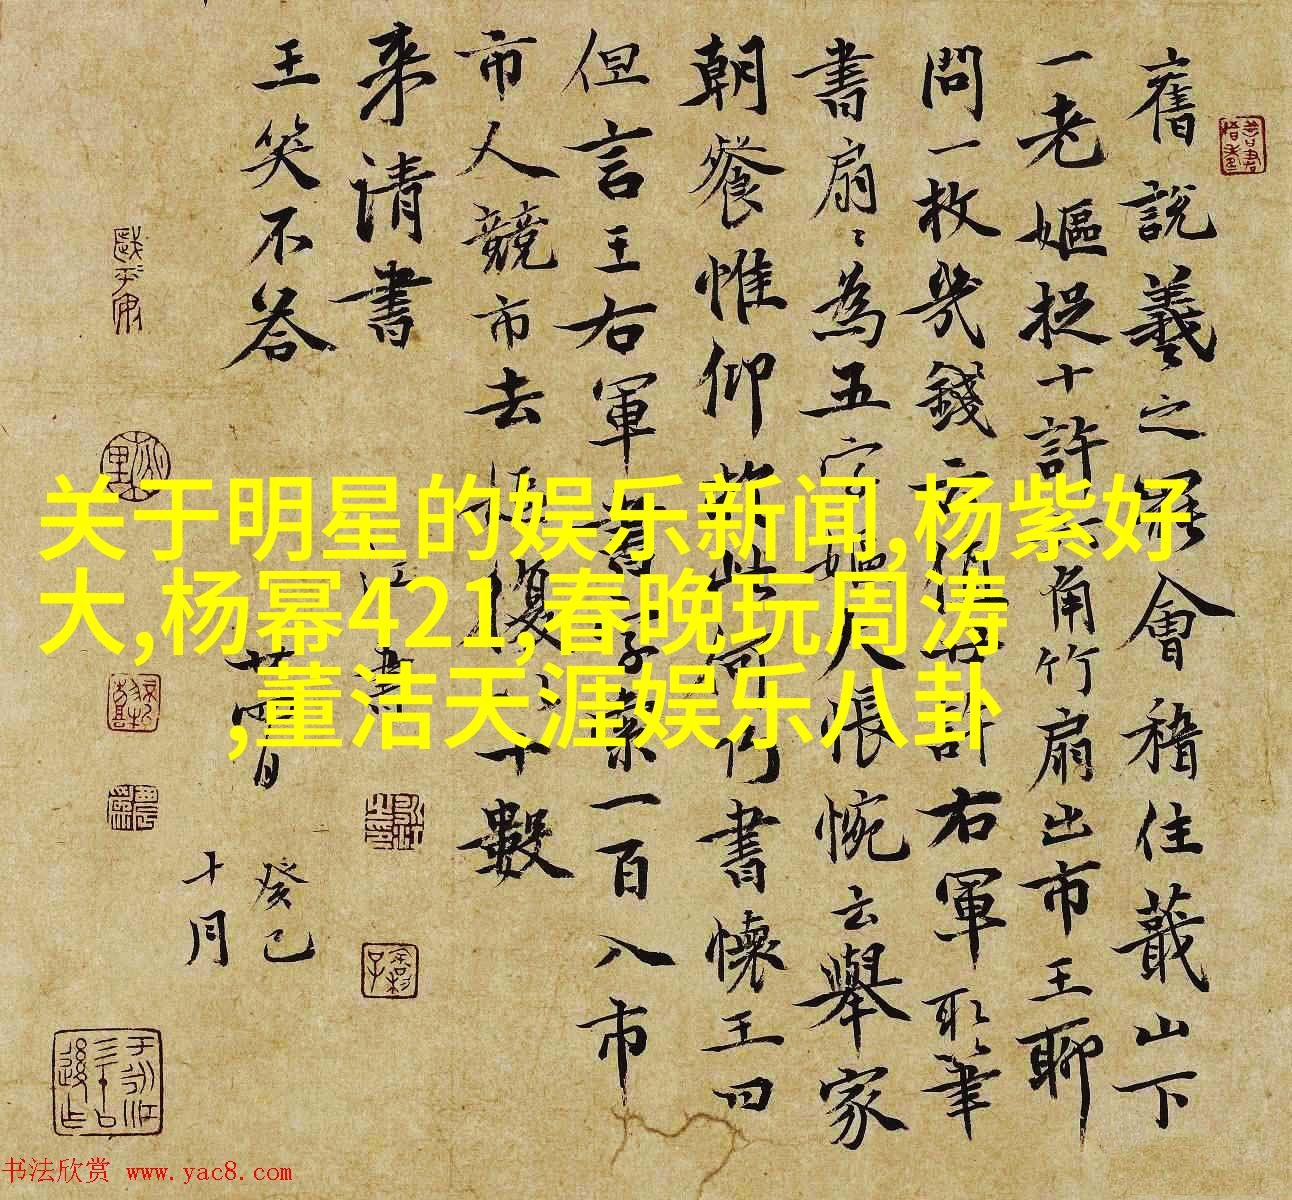 舊說羲之罷會稽住蕺山下
一老嫗捉十許六角竹扇出市王聊
問一枚幾錢云 許右軍取筆
書扇〻為五字嫗大悵惋云舉家
朝餐惟仰於此何乃書懷王曰
但言王右軍書字索一百入市
市人競市去 復以十數
来請書
王笑不答
書
癸巳
十月
关于明星的娱乐新闻,杨紫好
大,杨幂421,春晚玩周涛
,董洁天涯娱乐八卦
书法欣赏 www.yac8.com